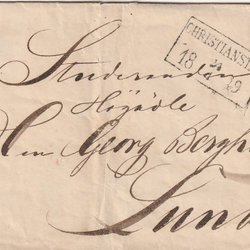 CHRISTIANST
24
18 49
Studeranden
Högädle
Herr Georg Bergh
Lund